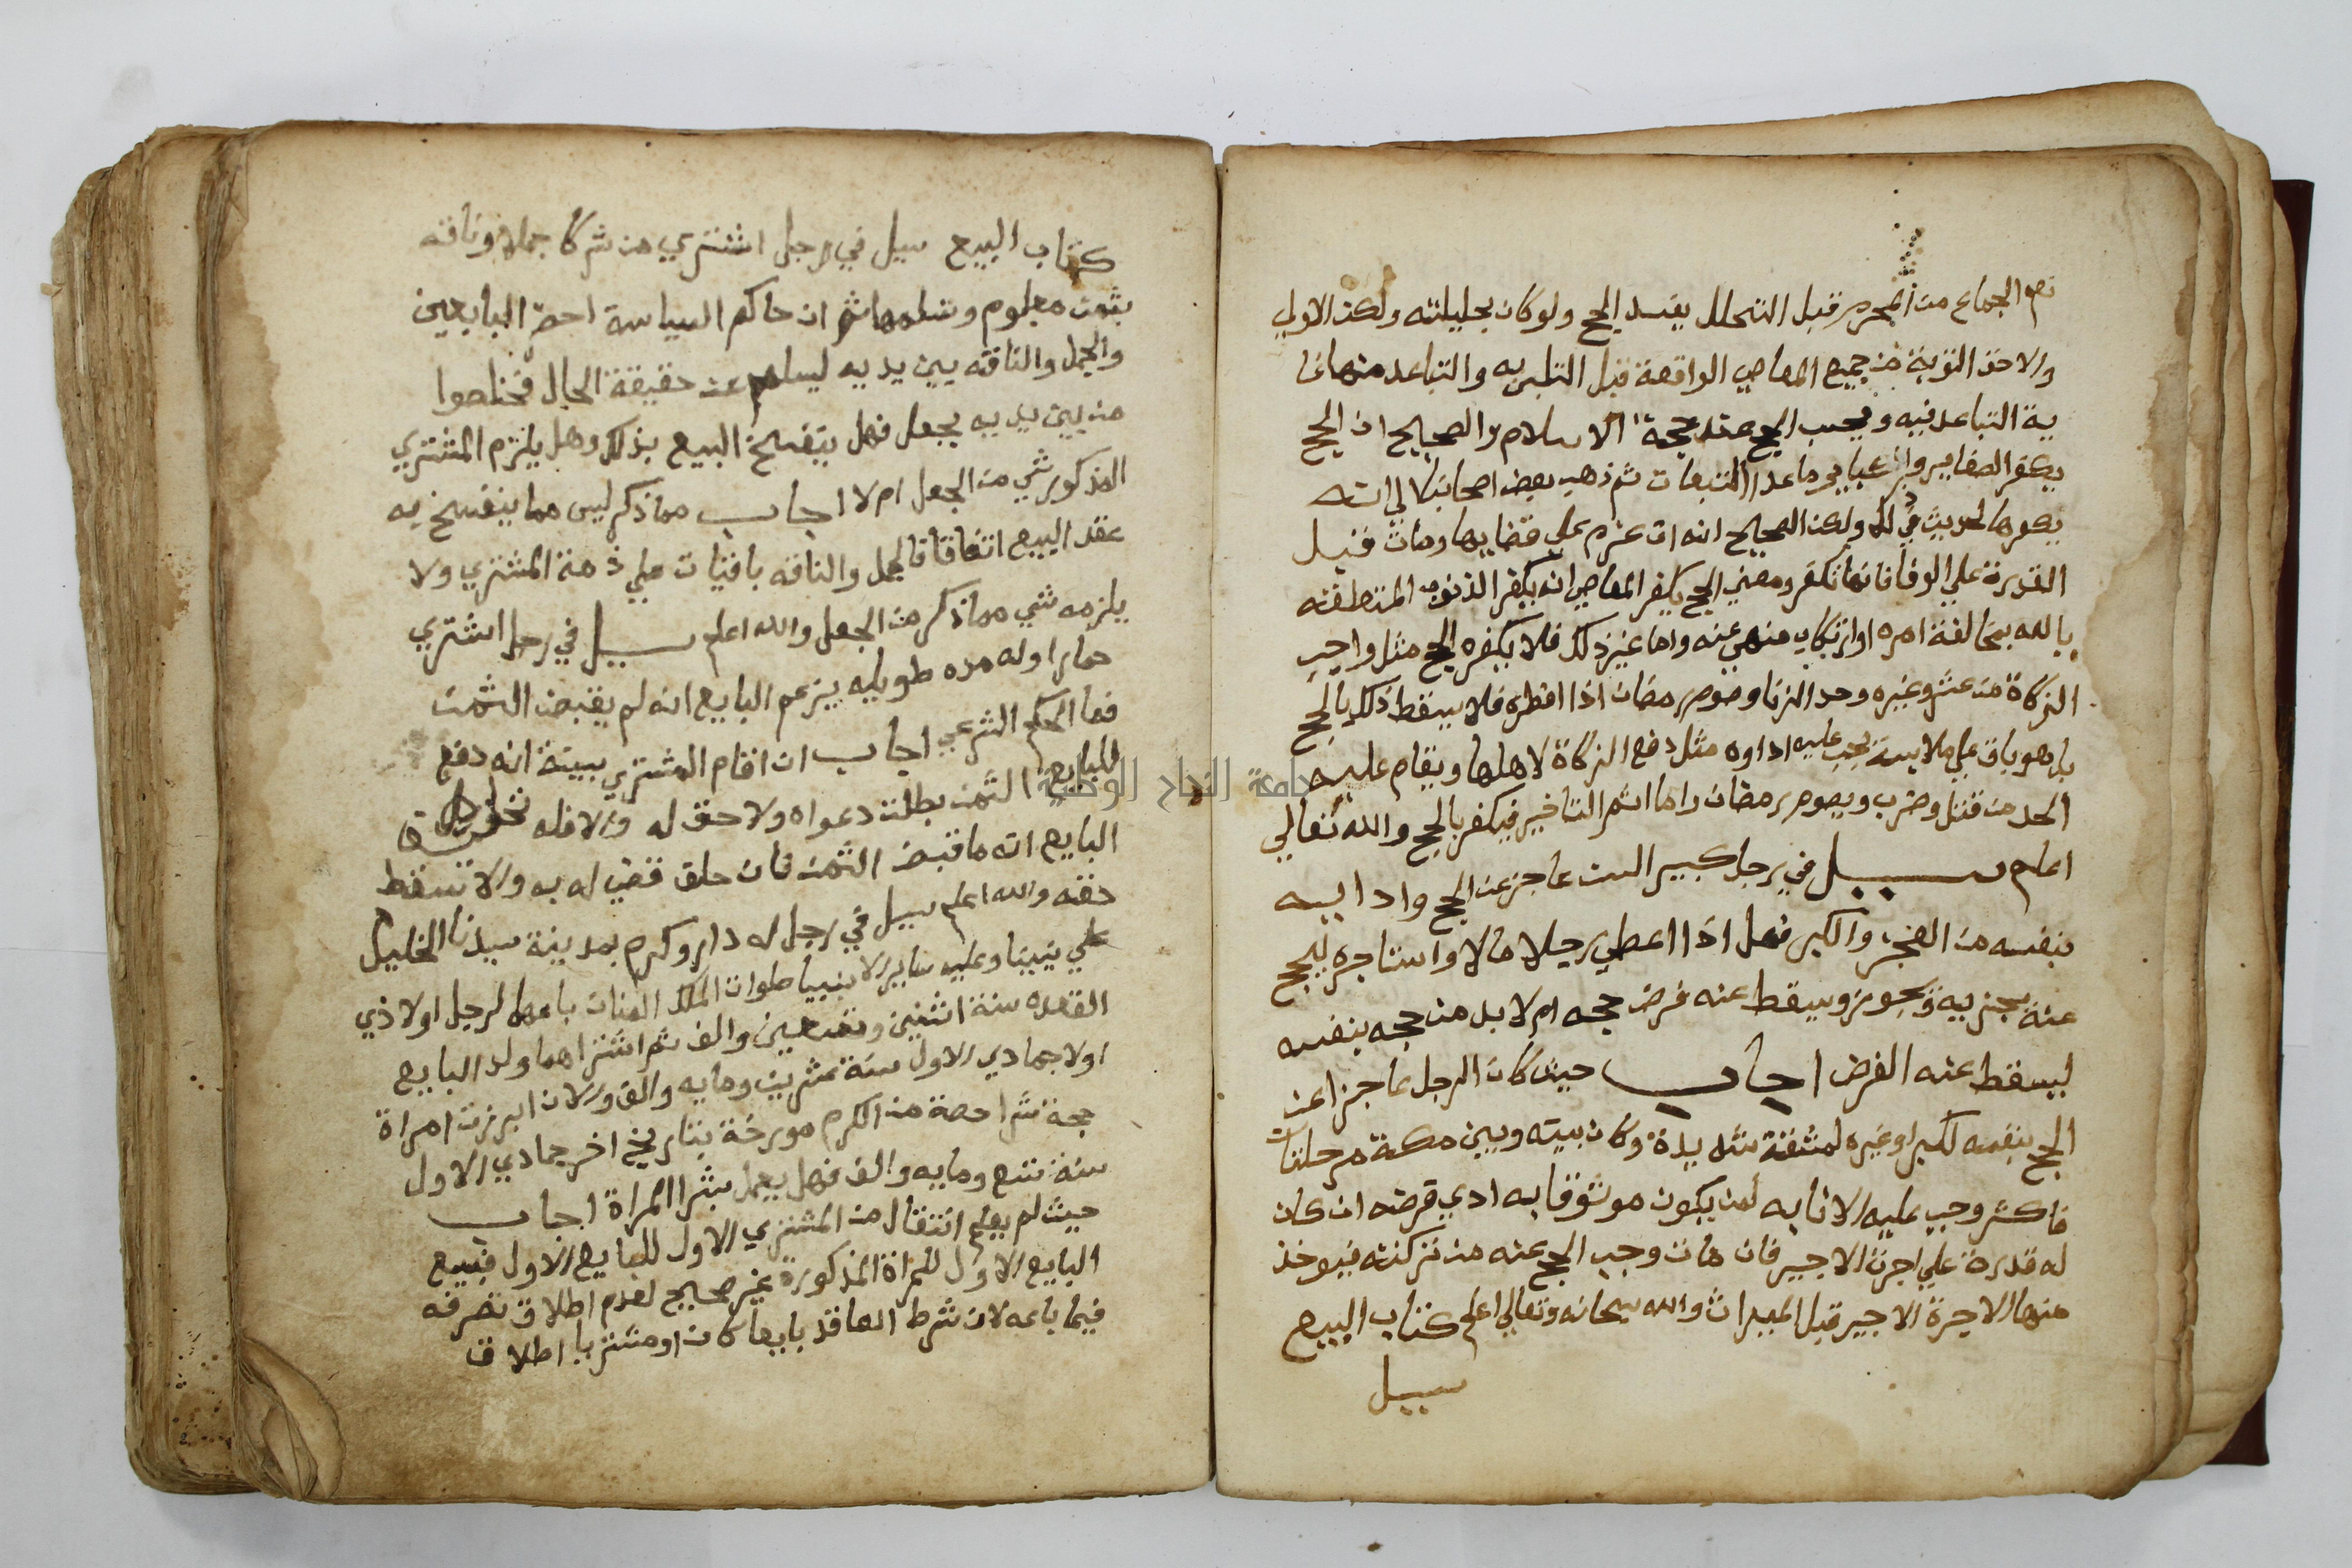 نعم الجماع من المحرم قبل التحلل يفسد الحج ولو كان بحليلته ولكن الاولي
والاحق التوبة من جميع المعاصي الواقعة قبل التلبس به والتباعد منها غا
ية التباعد فيه ويحسب الحج عنه حجة الاسلام والصحيح ان الحج
يكفر الصغاير والكباير ما عدا التبعات ثم ذهب بعض اصحابنا الي انه
يكفرها لحديث في ذلك ولكن الصحيح انه ان عزم علي قضايها ومات قبل
القدرة علي الوفا فانها تكفر ومعني الحج يكفر المعاصي انه يكفر الذنوب المتعلقة
بالله بمخالفة امره او ارتكاب منهي عنه واما غير ذلك فلا يكفره الحج مثل واجب
الزكاة من عشر وغيره وحد الزنا وصوم رمضان اذا افطره فلا يسقط ذلك بالحج
بل هو باق علي ملابسه يجب عليه اداوه مثل دفع الزكاة لاهلها ويقام عليه
الحد من قتل وضرب ويصوم رمضان واما اثم التاخير فيكفر بالحج والله تعالي
اعلم سيل في رجل كبير السن عاجز عن الحج وادائه
بنفسه من العجز والكبر فهل اذا اعطي رجلا مالا واستاجره ليحج
عنه يجزيه ويجوز ويسقط عنه فرض حجه ام لا بد من حجه بنفسه
ليسقط عنه الفرض اجاب حيث كان الرجل عاجزا عن
الحج بنفسه لكبر او غيره لمشقة شديدة وكان بيته وبين مكة مرحلتان
فاكثر وجب عليه الانابه لمن يكون موثوقا به ادي فرضه ان كان
له قدرة علي اجرة الاجير فان مات وجب الحج عنه من تركته فيوخذ
منها الاجرة الاجير قبل الميراث والله سبحانه وتعالي اعلم كتاب البيع
سيل
كتاب البيع سيل في رجل اشتري من شركا جملا وناقه
بثمن معلوم وتسلمها ثم ان حاكم السياسة احضر البايعين
والجمل والناقه بين يديه ليسلهم عن حقيقة الحال فخلصوا
من بين يديه بجعل فهل ينفسخ البيع بذلك وهل يلزم المشتري
المذكور شي من الجعل ام لا اجاب ما ذكر ليس مما ينفسخ به
عقد البيع اتفاقا فالجمل والناقه باقيات علي ذمة المشتري ولا
يلزمه شي مما ذكر من الجعل والله اعلم سيل في رجل اشتري
حمارا وله مده طويله يزعم البايع انه لم يقبض الثمن
فما الحكم الشرعي اجاب ان اقام المشتري ببينة انه دفع
للبايع الثمن بطلت دعواه ولا حق له والا فله تحليف
البايع انه ما قبض الثمن فان حلف قضي له به والا سقط
حقه والله اعلم سيل في رجل له دار وكرم بمدينة سيدنا الخليل
علي نبينا وعليه ساير الانبيا صلوات الملك المنان باعها لرجل اولا ذي
القعده سنة اثنين وتسعين والف ثم اشتراهما ولد البايع
اولا جمادي الاول سنة عشرين ومايه والف والان ابرزت امراة
حجة شرا حصة من الكرم مورخة بتاريخ اخر جمادي الاول
سنة تسع ومايه والف فهل يعمل بشرا المراة اجاب
حيث لم يعلم انتقال من المشتري الاول للبايع الاول فبيع
البايع الاول للمراة المذكورة غير صحيح لعدم اطلاق تصرفه
فيما باعه لان شرط العاقد بايعا كان او مشتريا اطلاق
جامعة النجاح الوطنية